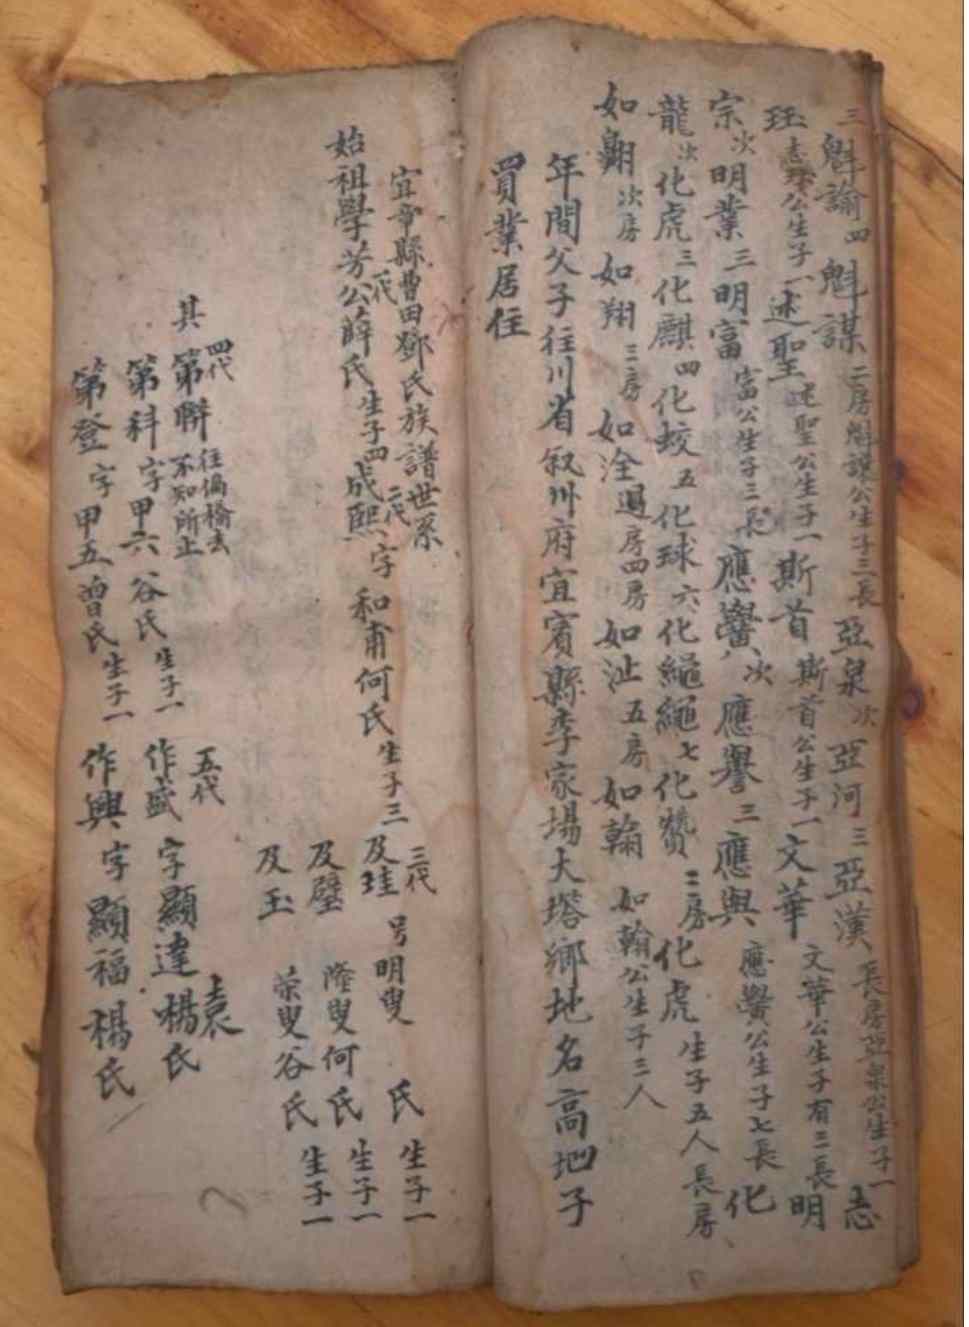 三魁諭四魁謀二房魁謀公生子三長亞泉次亞河三亞漢長房亞泉公生子一志
珏志珏公生子一述聖述聖公生子一斯首斯首公生子一文華文華公生子有三長明
宗次明業三明富富公生子三長應黌次應譽三應與應黌公生子七長化
龍次化虎三化麒四化蛟五化球六化繩繩七化贊二房化虎生子五人長房
如翺次房如翔三房如洤過房四房如沚五房如翰如翰公生子三人
年間父子往川省叙州府宜賓縣李家場大塔鄉地名高地子
買業居住
宜章縣曹田鄧氏族譜世系
始祖學芳公薛氏生子四成熙字和甫何氏生子三及珪号明叟氏生子一
一代
二代
三代
及璧隆叟何氏生子一
及玉榮叟谷氏生子一
四代
其第聨往偏橋去不知所止
第科字甲六谷氏生子一作盛字顯達楊袁氏
五代
第登字甲五曾氏生子一作興字顯福楊氏